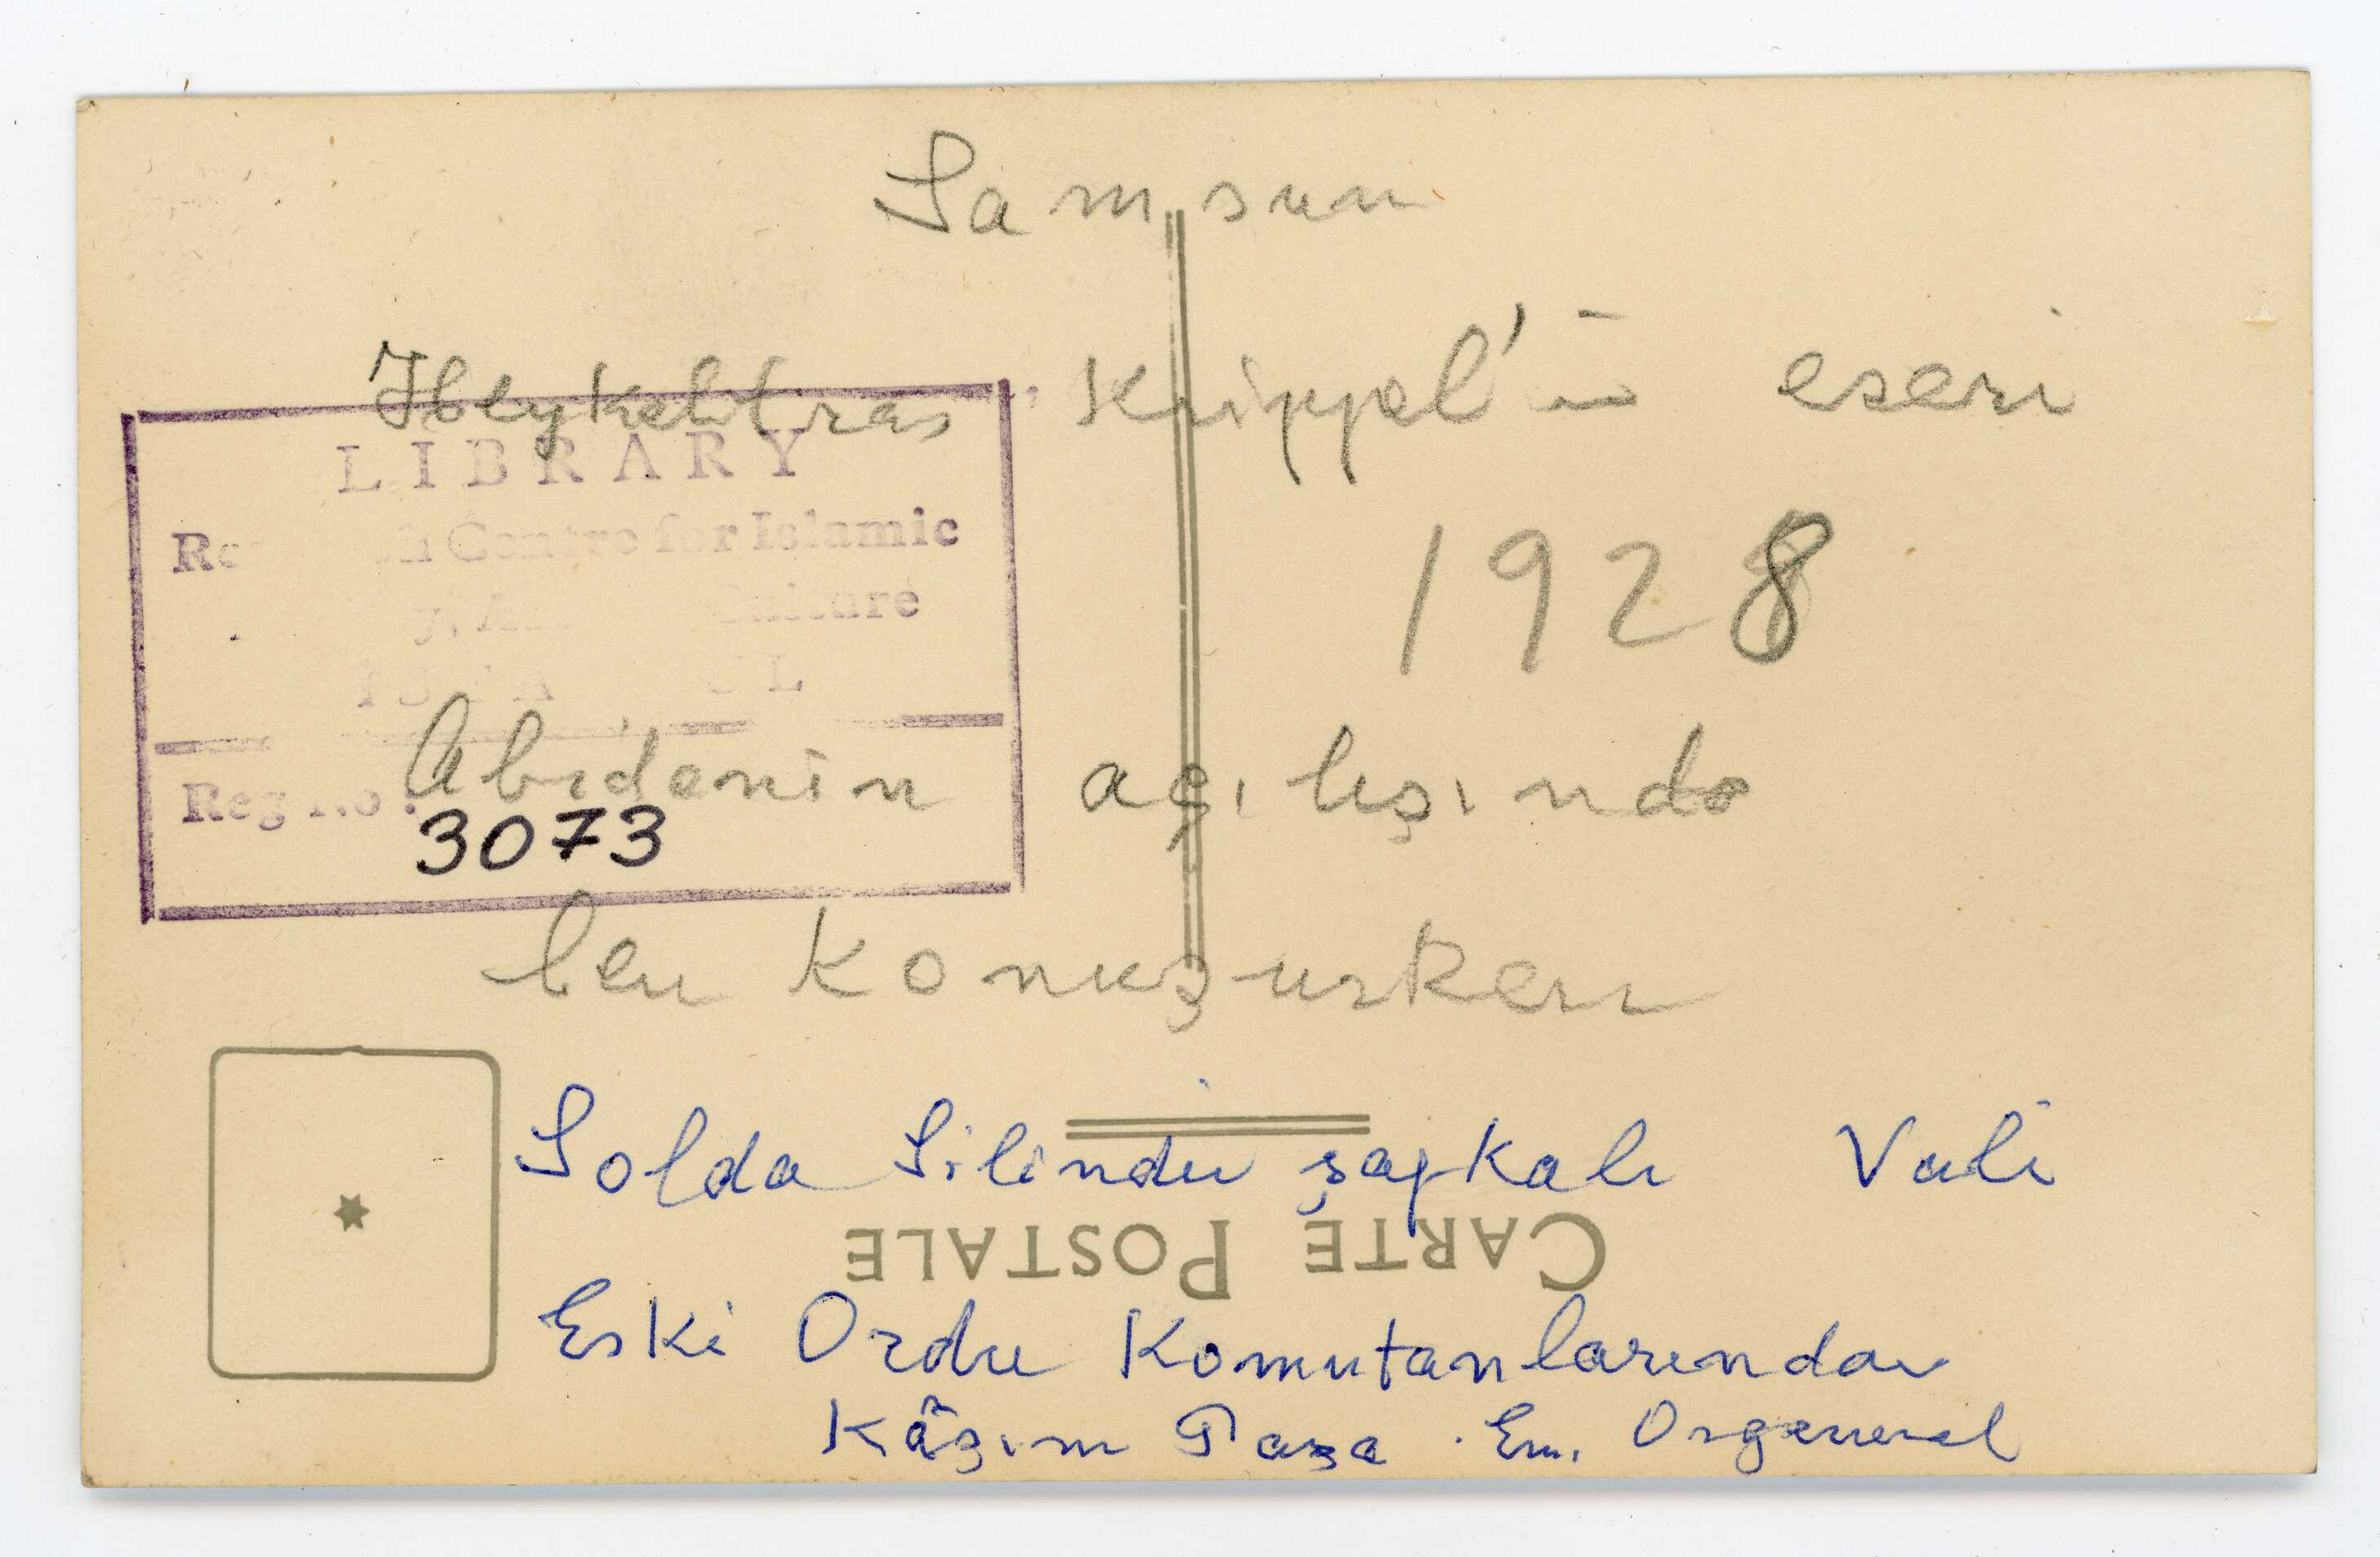 Samsun
Heykeltras Krippel'in eseri
LIBRARY
Centre for Islamic
Culture
1928
Abidenin açılışında
Reg No :
3073
ben konuşurken
Solda Silindir şapkalı Vali
CARTE POSTALE
Eski Ordu Komutanlarından
Kâzım Paşa Em. Orgeneral